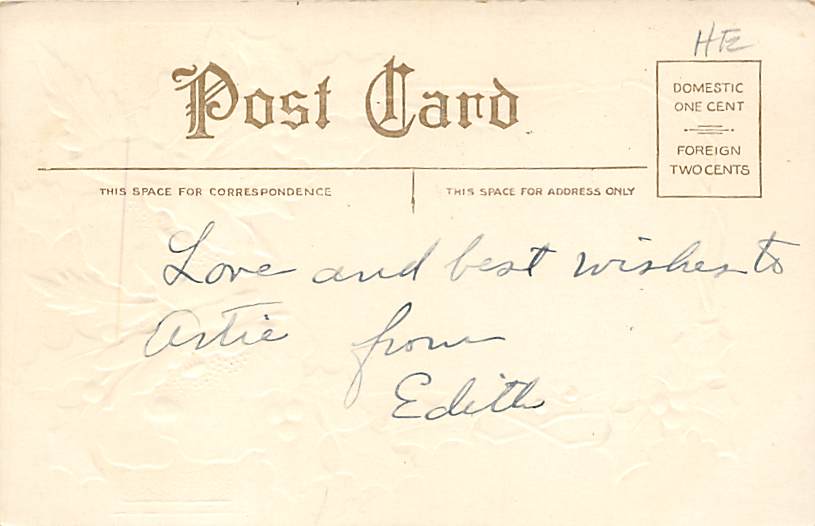 Post Card
DOMESTIC
ONE CENT
FOREIGN
TWO CENTS
THIS SPACE FOR CORRESPONDENCE
THIS SPACE FOR ADDRESS ONLY
Love and best wishes to
Artie from
Edith